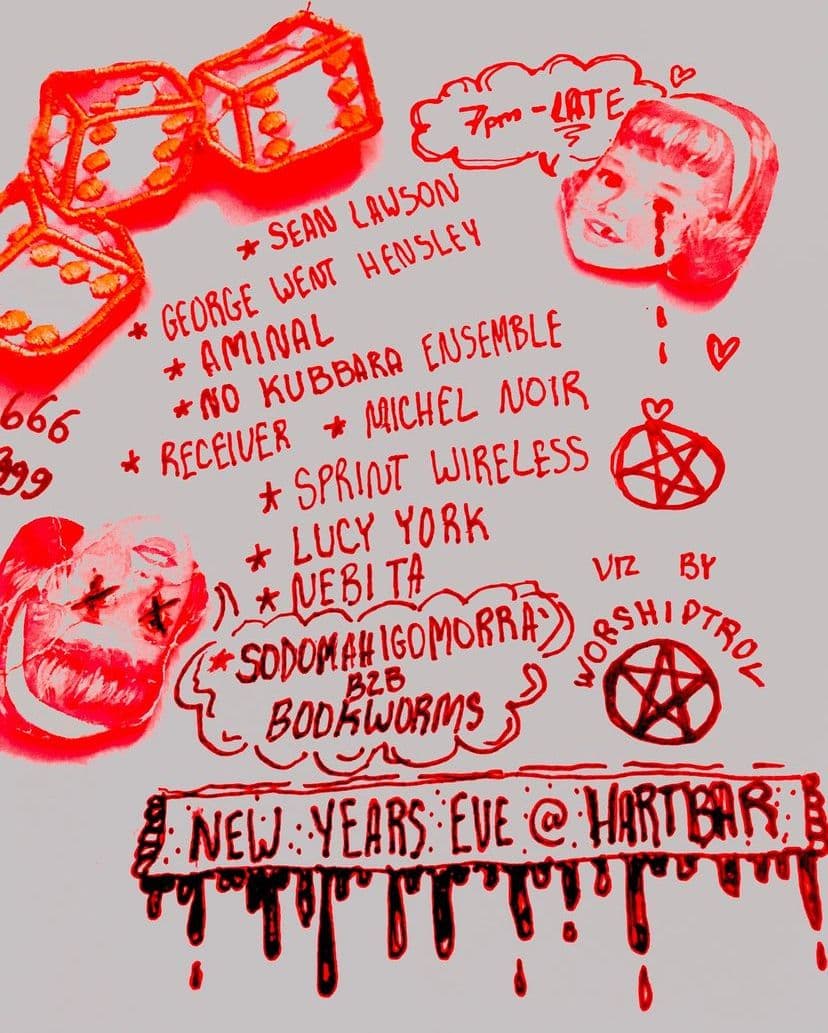 7pm - LATE
* SEAN LAWSON
* GEORGE WENT HENSLEY
* AMINAL
* NO KUBBARA ENSEMBLE
* RECEIVER * MICHEL NOIR
* SPRINT WIRELESS
* LUCY YORK
* NEBITA
666
999
VIZ BY
WORSHIPTROL
* SODOMAHIGOMORRA
B2B
BOOKWORMS
NEW YEARS EVE @ HARTBAR